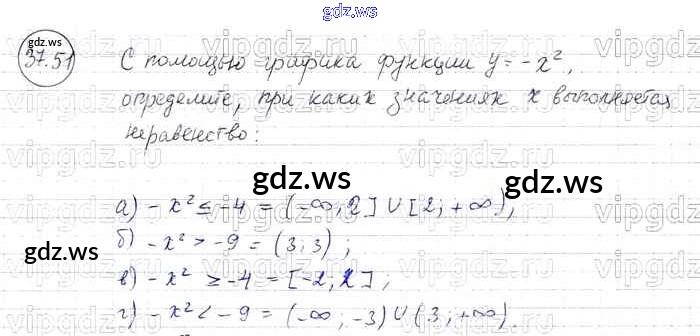 gdz.ws
gdz.ws
37.51
С помощью графика функции y = -x²,
определите, при каких значениях x выполняется
неравенство:
gdz.ws gdz.ws
а) -x² ≤ -4 = (-∞; 2] ∪ [2; +∞),
gdz.ws
б) -x² > -9 = (3; 3);
в) -x² ≥ -4 = [-2; 2];
г) -x² < -9 = (-∞; -3) ∪ (3; +∞)
gdz.ws
vipgdz.ws vipgdz.ws vipgdz.ws